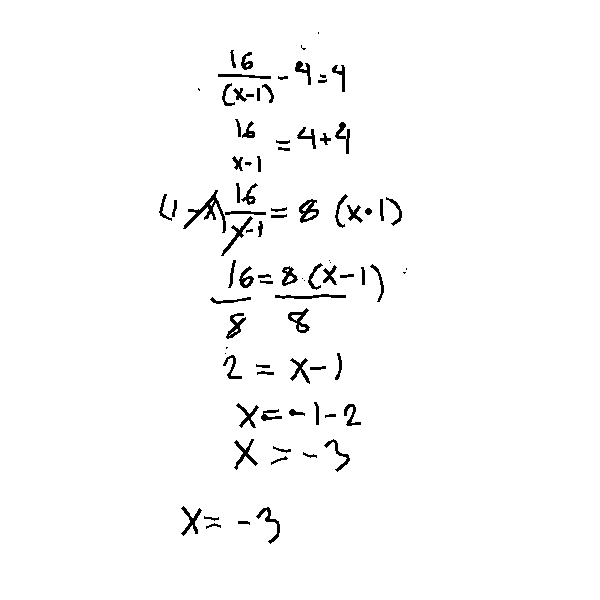 16/(x-1) - 4 = 4
16/x-1 = 4+4
(1-x) 16/x-1 = 8 (x•1)
16/8 = 8.(x-1)/8
2 = x-1
x = -1-2
x = -3
x = -3